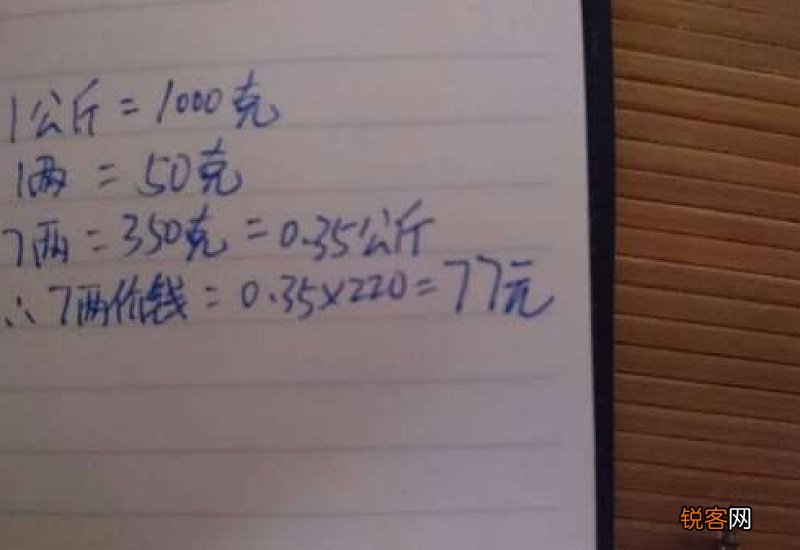 1公斤=1000克
1两=50克
7两=350克=0.35公斤
∴7两价钱=0.35×220=77元
锐客网